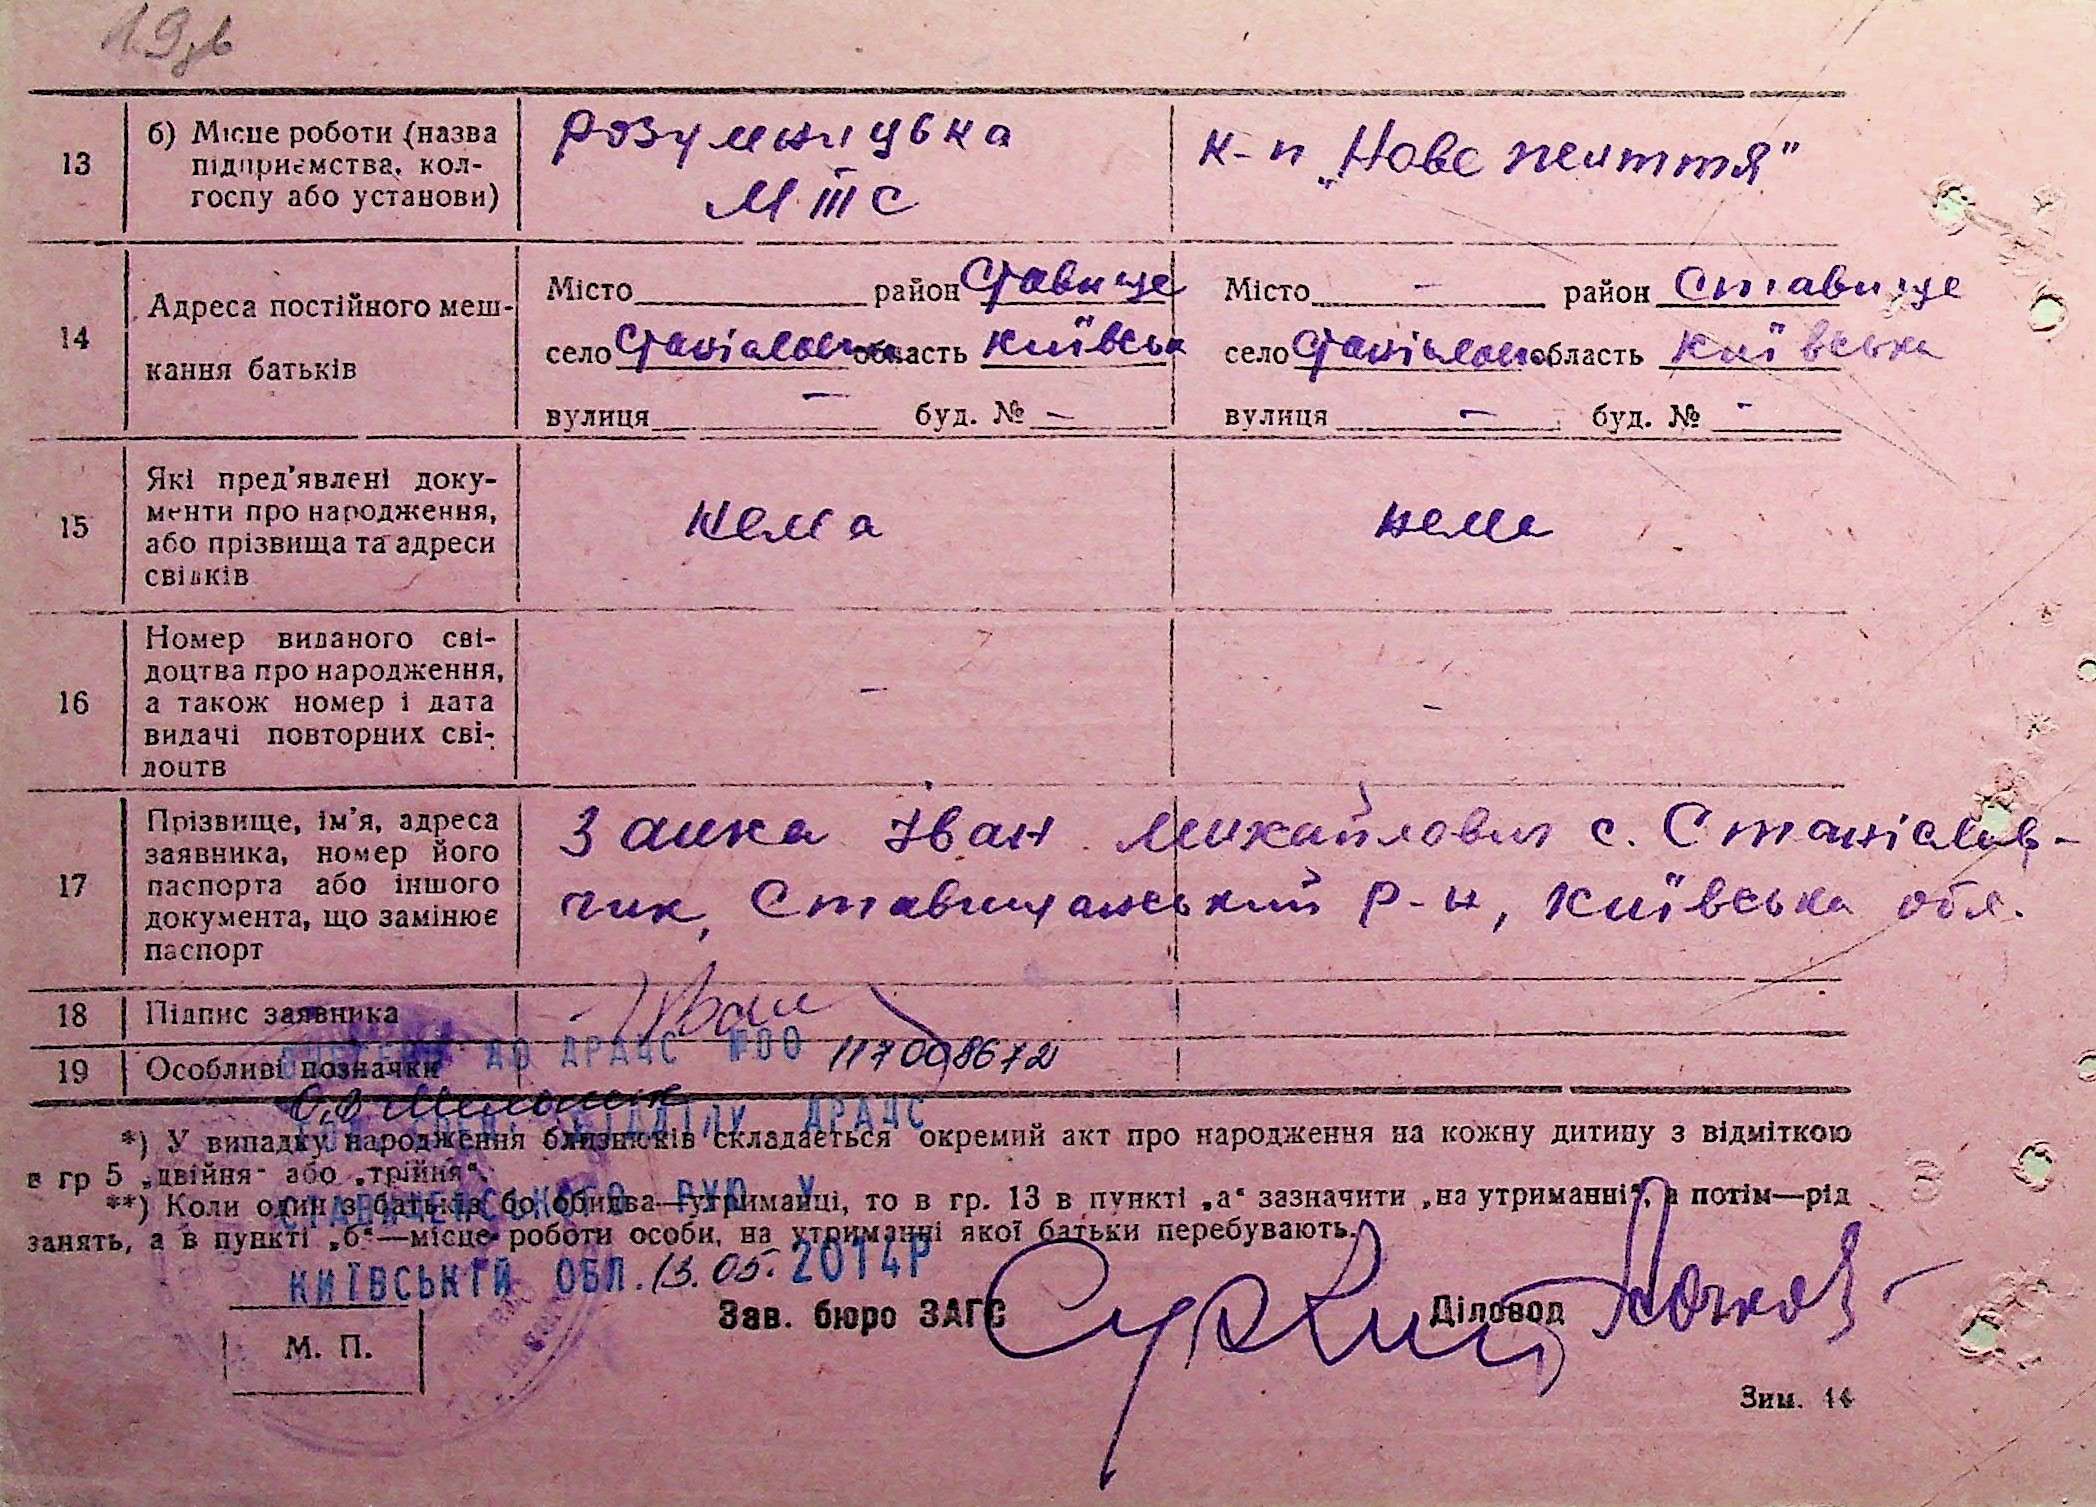 19зв
13
б) Місце роботи (назва
підприємства, кол-
госпу або установи)
Розумницька
МТС
к-п „Нове життя"
14
Адреса постійного меш-
кання батьків
Місто район Ставище
село область Київська
вулиця — буд. № —
Місто — район Ставище
село область Київська
вулиця — буд. № -
15
Які пред'явлені доку-
менти про народження,
або прізвища та адреси
свідків
нема
нема
16
Номер виданого сві-
доцтва про народження,
а також номер і дата
видачі повторних сві-
доцтв
–
-
17
Прізвище, ім'я, адреса
заявника, номер його
паспорта або іншого
документа, що замінює
паспорт
Заика Іван Михайлович с. Станіслав-
чик, Ставищанський р-н, Київська обл.
18
Підпис заявника
19
Особливі позначки
ДО ДРАЦС №00 117008672
ВІДДІЛУ ДРАЦС
*) У випадку народження близнюків складається окремий акт про народження на кожну дитину з відміткою
в гр 5 „двійня" або „трійня".
**) Коли один з батьків бо обидва—утриманці, то в гр. 13 в пункті „а" зазначити „на утриманні", а потім—рід
занять, а в пункті „б"—місце роботи особи, на утриманні якої батьки перебувають.
СТАВИЩЕНСЬКОГО РУЮ У
КИЇВСЬКІЙ ОБЛ. 13.05.2014Р
М. П.
Зав. бюро ЗАГС
Діловод
Зим. 14